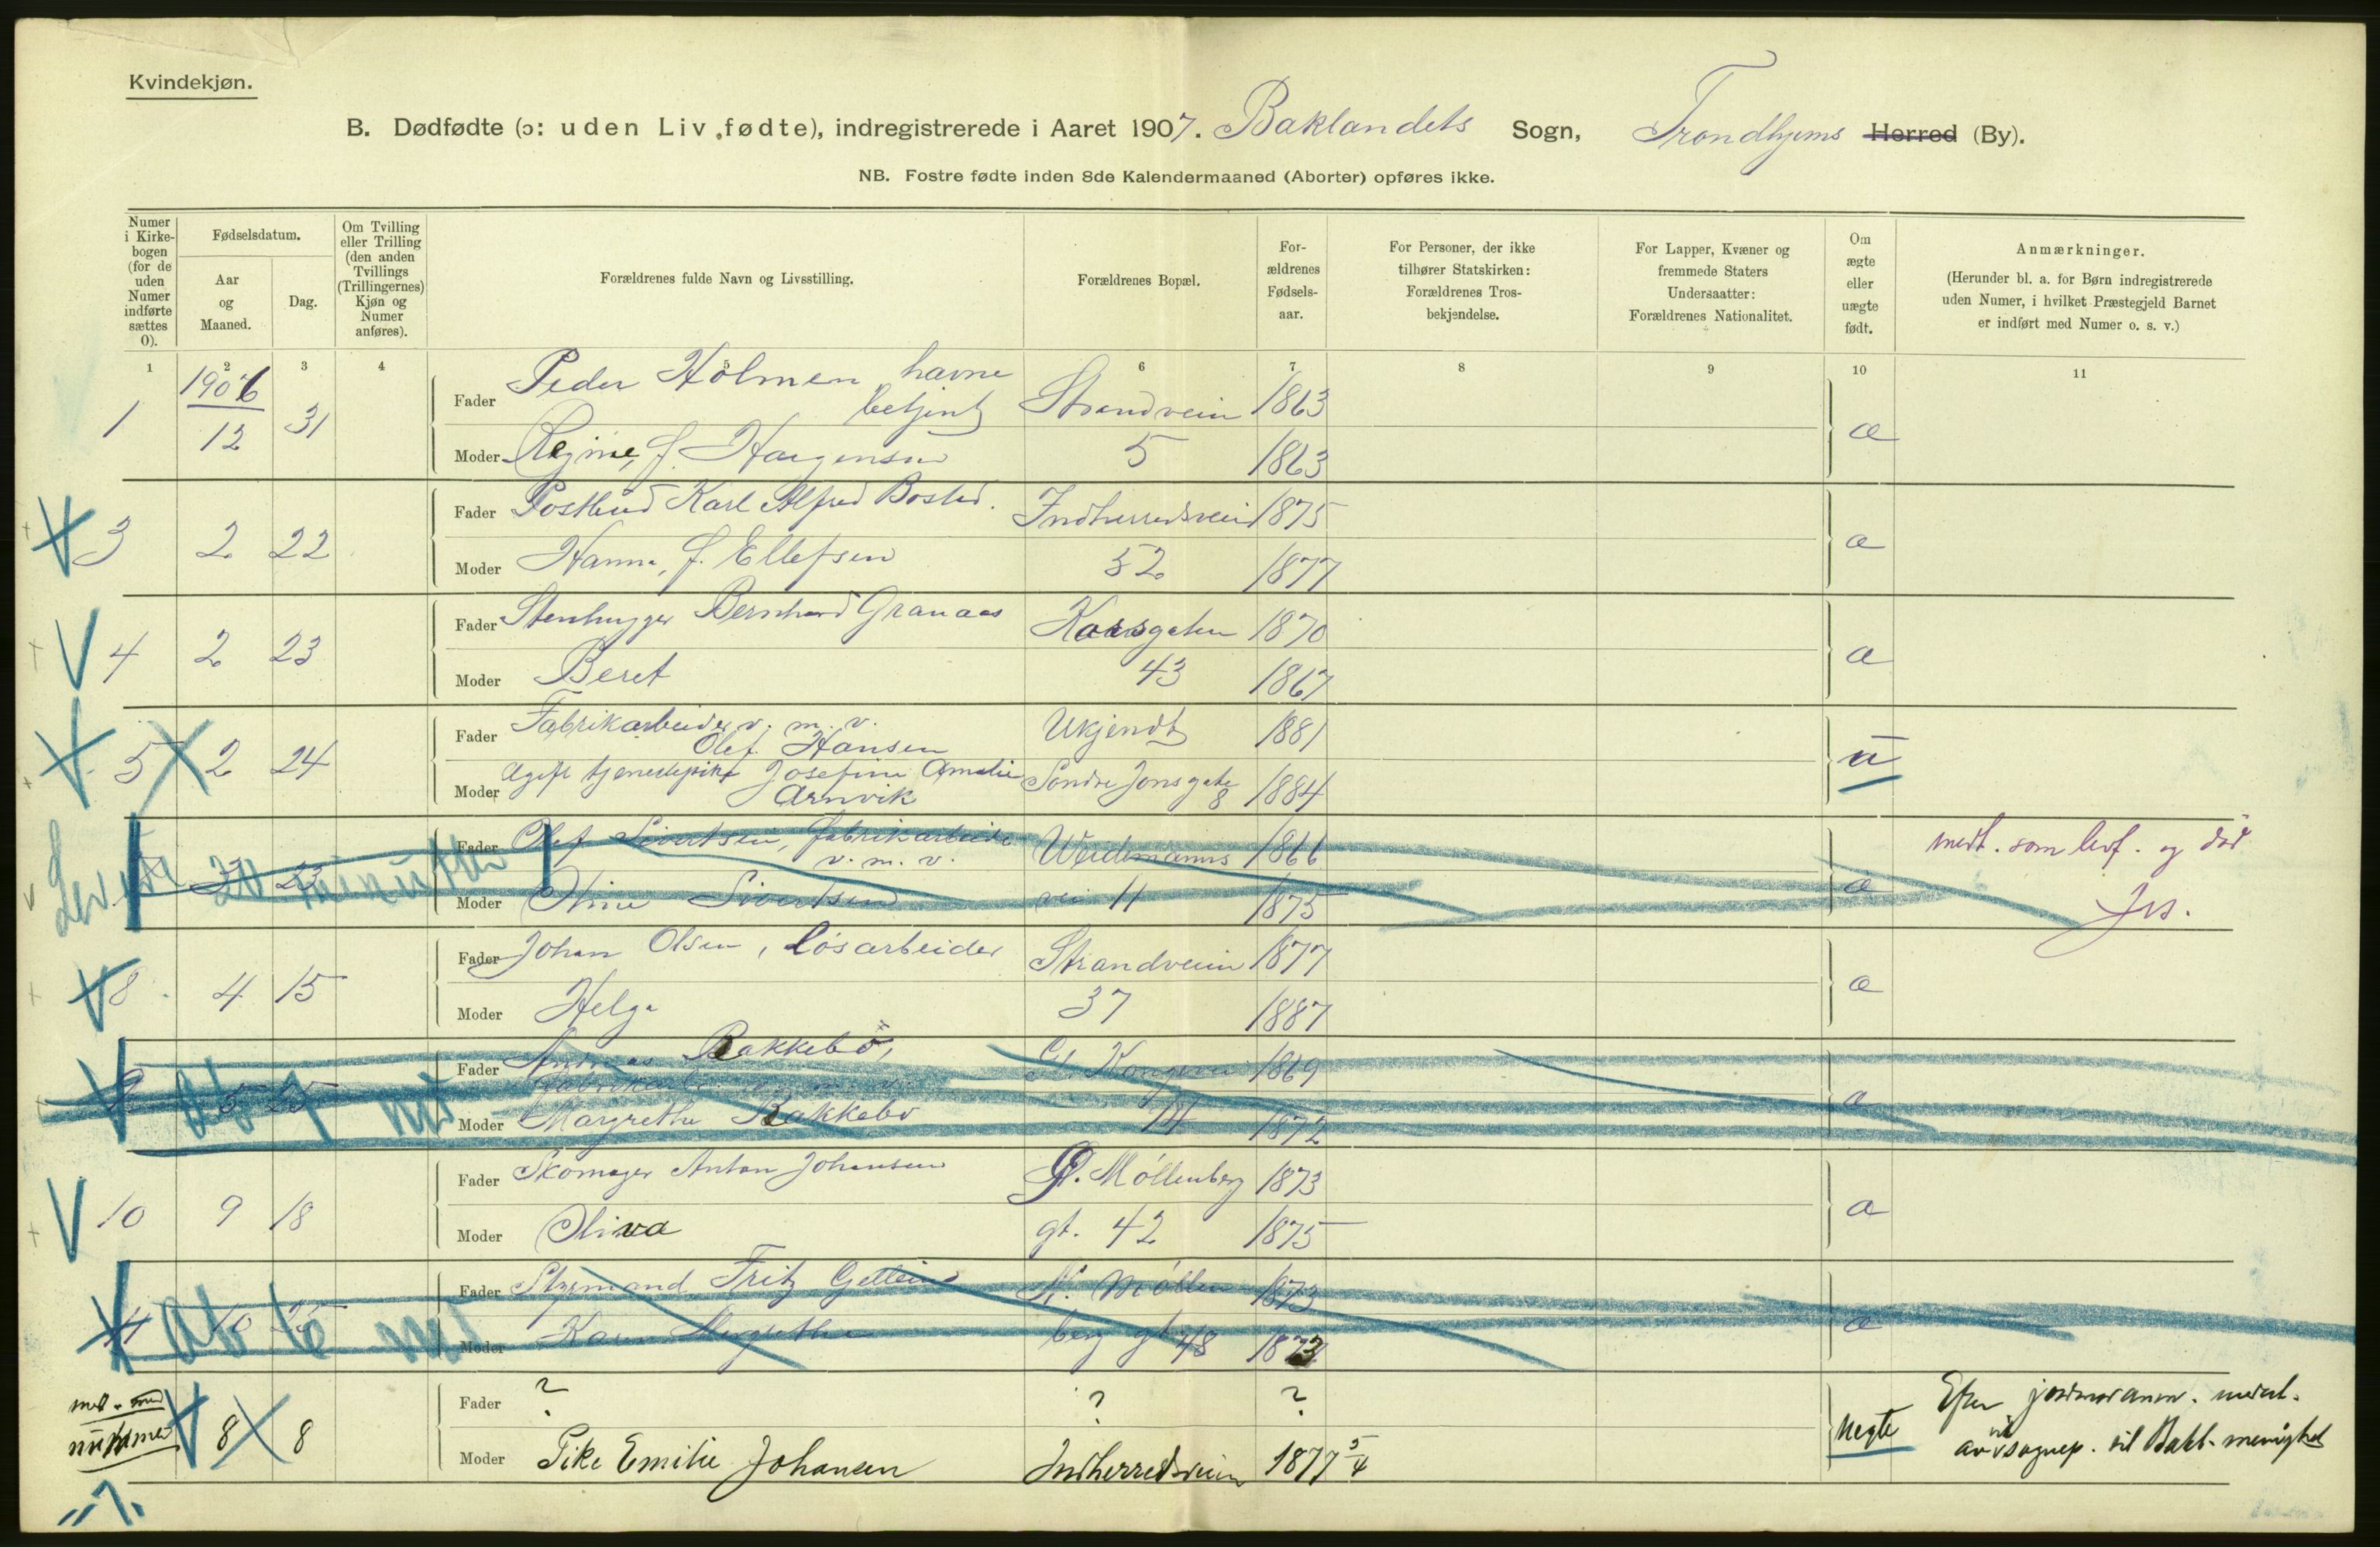 Kvindekjøn.
B. Dødfødte (ɔ: uden Liv fødte), indregistrerede i Aaret 1907. Baklandets Sogn, Trondhjems Herred (By).
NB. Fostre fødte inden 8de Kalendermaaned (Aborter) opføres ikke.
Numer i Kirkebogen (for de uden Numer indførte sættes 0).
Fødselsdatum.
Aar og Maaned.
Dag.
Om Tvilling eller Trilling (den anden Tvillings (Trillingernes) Kjøn og Numer anføres).
Forældrenes fulde Navn og Livsstilling.
Forældrenes Bopæl.
Forældrenes Fødselsaar.
For Personer, der ikke tilhører Statskirken: Forældrenes Trosbekjendelse.
For Lapper, Kvæner og fremmede Staters Undersaatter: Forældrenes Nationalitet.
Om ægte eller uægte født.
Anmærkninger.
(Herunder bl. a. for Børn indregistrerede uden Numer, i hvilket Præstegjeld Barnet er indført med Numer o. s. v.)
1 2 3 4 5 6 7 8 9 10 11
1 1906 12 31 Fader Peder Holmen havnebetjent Strandveien 1863 æ
Moder Regine, f. 5 1863
3 2 22 Fader Postbud Karl Alfred Bosted. Indherredsveien 1875 æ
Moder Hanna, f. Ellefsen 52 1877
4 2 23 Fader Stenhugger Bernhard Granaas Korsgaten 1870 æ
Moder Beret 43 1867
5 2 24 Fader Fabrikarbeider v. m. v. Olef Hansen Ukjendt 1881 u
Moder Ugift tjenestepike Josefine Amalie Arnvik Söndre Jonsgate 8 1884
23 Fader Olef Sivertsen, fabrikarbeider v. m. v. Weidemanns 1866 æ medt. som levf. og död
Moder Stine Sivertsen vei 11 1875
Levet 20 minutter
8 4 15 Fader Johan Olsen, Løsarbeider Strandveien 1877 æ
Moder Helga 37 1887
9 5 25 Fader Andreas Bakkebö, fabrikarb. v. m. v. Gl. Kongevei 1869 æ
Moder Margrethe Bakkebö 14 1872
10 9 18 Fader Skomager Anton Johansen Ø. Møllenberg 1873 æ
Moder Oliva gt. 42 1875
11 10 25 Fader Styrmand Fritz N. Möllen 1873 æ
Moder Karen Margrethe berg gt 48 1873
nummer 8 8 Fader ? ? ? Uegte Efter jordmoranm.
Moder Pike Emilie Johansen Indherredsveien 1877 5/4 til Bakl. menighet